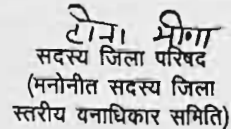 टोना मीणा
सदस्य जिला परिषद
(मनोनीत सदस्य जिला
स्तरीय वनाधिकार समिति)